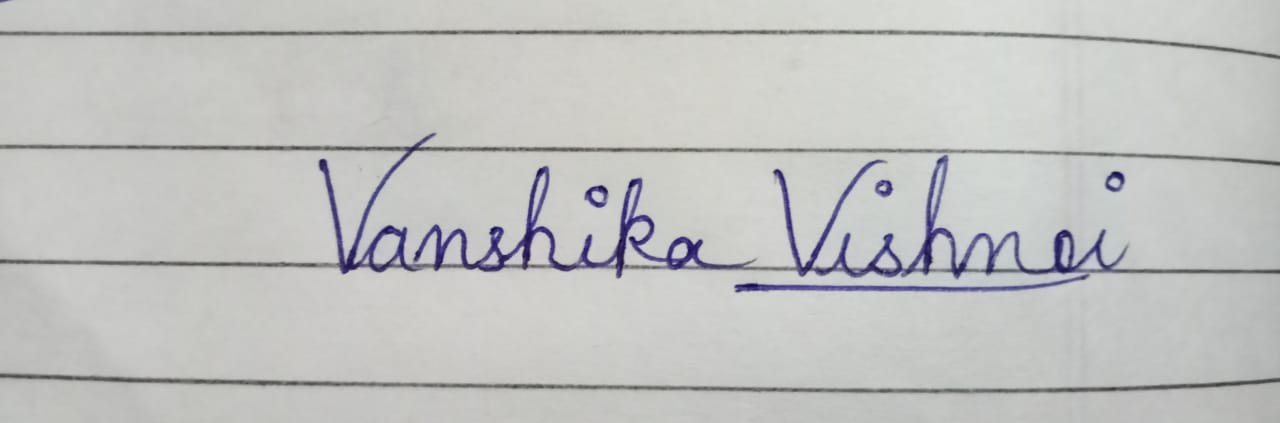 Vanshika Vishnoi